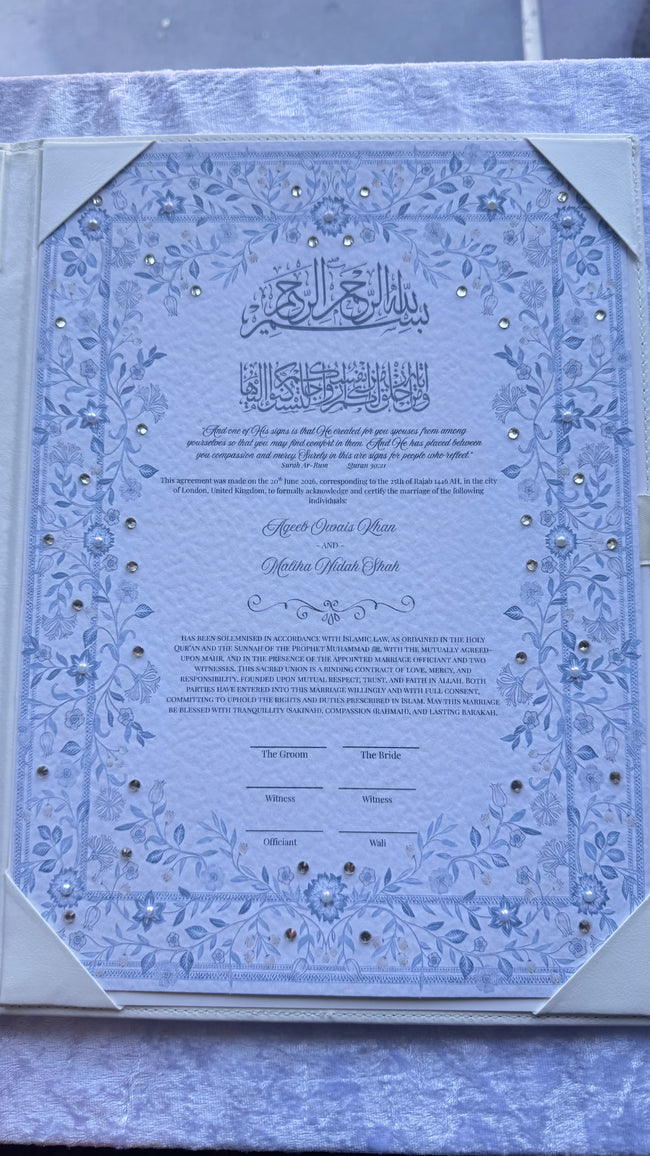 بسم الله الرحمن الرحيم
"And one of His signs is that He created for you spouses from among
yourselves so that you may find comfort in them. And He has placed between
you compassion and mercy. Surely in this are signs for people who reflect."
Surah Ar-Rum Quran 30:21
This agreement was made on the 20th June 2026, corresponding to the 25th of Rajab 1446 AH, in the city
of London, United Kingdom, to formally acknowledge and certify the marriage of the following
individuals:
Aqeeb Owais Khan
- AND -
Maliha Nidah Shah
HAS BEEN SOLEMNISED IN ACCORDANCE WITH ISLAMIC LAW, AS ORDAINED IN THE HOLY
QUR'AN AND THE SUNNAH OF THE PROPHET MUHAMMAD ﷺ, WITH THE MUTUALLY AGREED-
UPON MAHR, AND IN THE PRESENCE OF THE APPOINTED MARRIAGE OFFICIANT AND TWO
WITNESSES. THIS SACRED UNION IS A BINDING CONTRACT OF LOVE, MERCY, AND
RESPONSIBILITY, FOUNDED UPON MUTUAL RESPECT, TRUST, AND FAITH IN ALLAH. BOTH
PARTIES HAVE ENTERED INTO THIS MARRIAGE WILLINGLY AND WITH FULL CONSENT,
COMMITTING TO UPHOLD THE RIGHTS AND DUTIES PRESCRIBED IN ISLAM. MAY THIS MARRIAGE
BE BLESSED WITH TRANQUILITY (SAKINAH), COMPASSION (RAHMAH), AND LASTING BARAKAH.
The Groom The Bride
Witness Witness
Officiant Wali